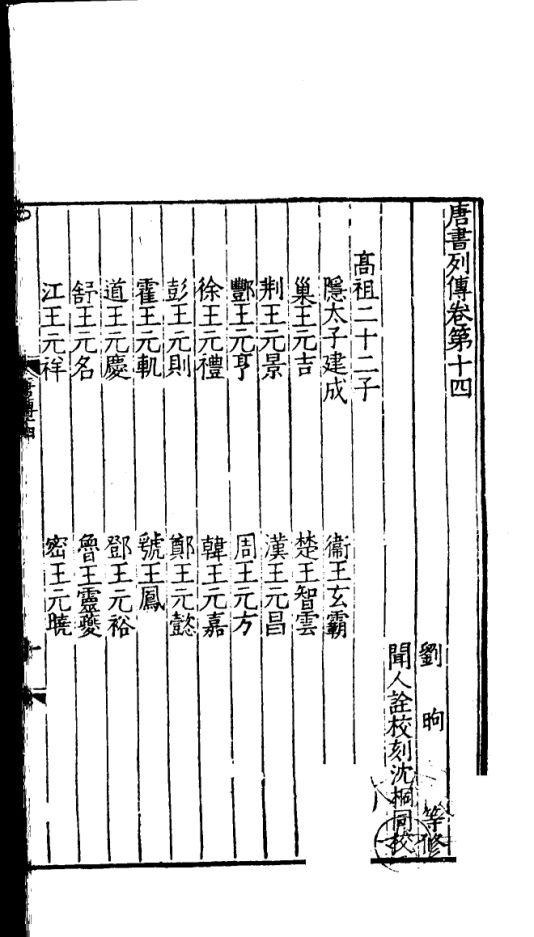 唐書列傳卷第十四
劉昫等修
聞人詮校刻沈桐同校
高祖二十二子
隱太子建成 衞王玄霸
巢王元吉 楚王智雲
荆王元景 漢王元昌
酆王元亨 周王元方
徐王元禮 韓王元嘉
彭王元則 鄭王元懿
霍王元軌 號王鳳
道王元慶 鄧王元裕
舒王元名 魯王靈夔
江王元祥 密王元曉